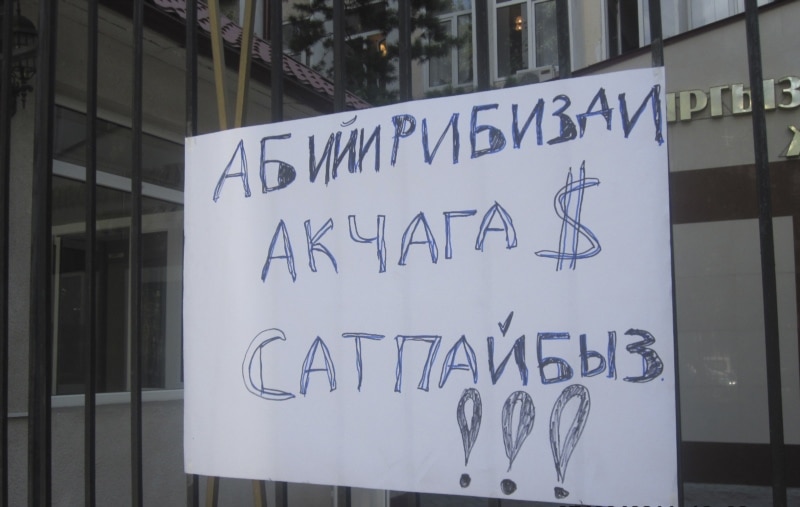 АБИЙИРИБИЗДИ
АКЧАГА $
САТПАЙБЫЗ.
!!!
ЫРГЫЗ